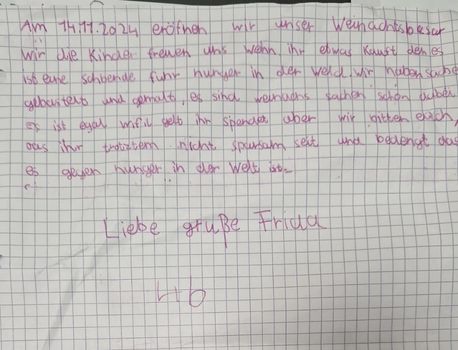 Am 14.11.2024 eröffnen wir unser Weinachtsbasar
wir die Kinder freuen uns wenn ihr etwas kauft den es
ist eine schbende für hunger in der weld. wir haben sache
gebastelt und gemalt, es sind weinachs sachen schon dabei
es ist egal wifil gelt ihr spendet aber wir bitten euch,
das ihr trotztem nicht sparsam seit und bedengt das
es gegen hunger in der Welt ist.
Liebe gruße Frida
4b